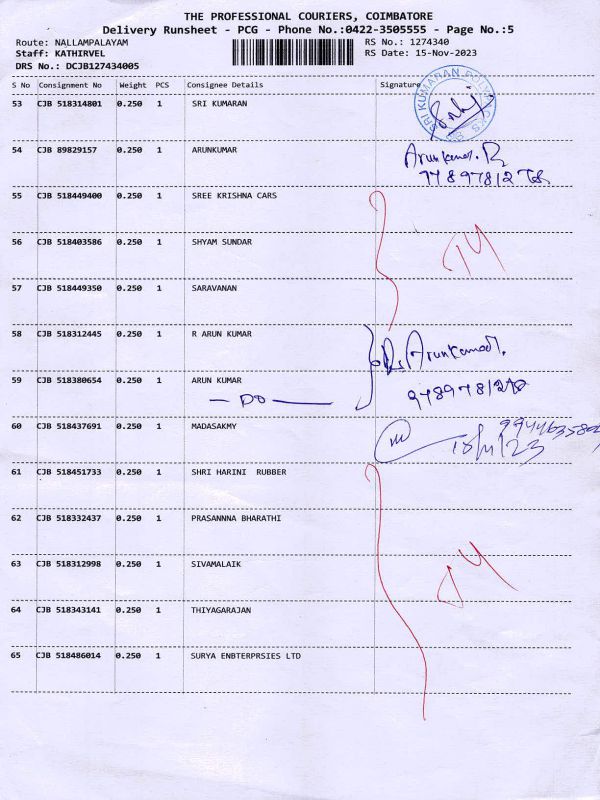 THE PROFESSIONAL COURIERS, COIMBATORE
Delivery Runsheet - PCG - Phone No.:0422-3505555 - Page No.:5
Route: NALLAMPALAYAM RS No.: 1274340
Staff: KATHIRVEL RS Date: 15-Nov-2023
DRS No.: DCJB127434005
S No Consignment No Weight PCS Consignee Details Signature
53 CJB 518314801 0.250 1 SRI KUMARAN
SRI KUMARAN
54 CJB 89829157 0.250 1 ARUNKUMAR Arunkumar. R
55 CJB 518449400 0.250 1 SREE KRISHNA CARS
56 CJB 518403586 0.250 1 SHYAM SUNDAR
57 CJB 518449350 0.250 1 SARAVANAN
58 CJB 518312445 0.250 1 R ARUN KUMAR
59 CJB 518380654 0.250 1 ARUN KUMAR
— DO —
60 CJB 518437691 0.250 1 MADASAKMY
61 CJB 518451733 0.250 1 SHRI HARINI RUBBER
62 CJB 518332437 0.250 1 PRASANNNA BHARATHI
63 CJB 518312998 0.250 1 SIVAMALAIK
64 CJB 518343141 0.250 1 THIYAGARAJAN
65 CJB 518486014 0.250 1 SURYA ENBTERPRSIES LTD